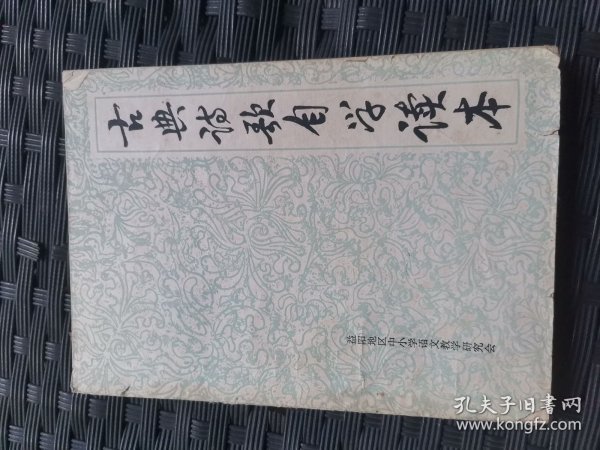 古典诗歌自学读本
益阳地区中小学语文教学研究会
孔夫子旧书网
www.kongfz.com